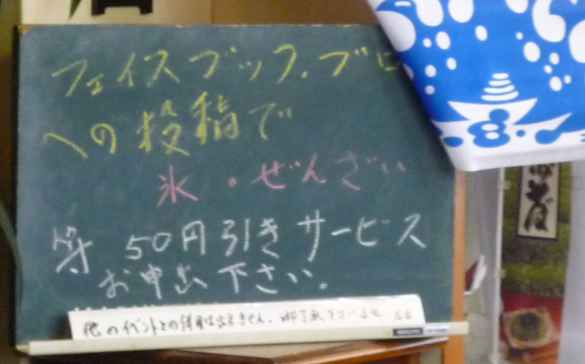 フェイスブック.ブロ
への投稿で
氷・ぜんざい
等 50円引きサービス
お申出下さい。
他のイベントとの併用は出来ません。